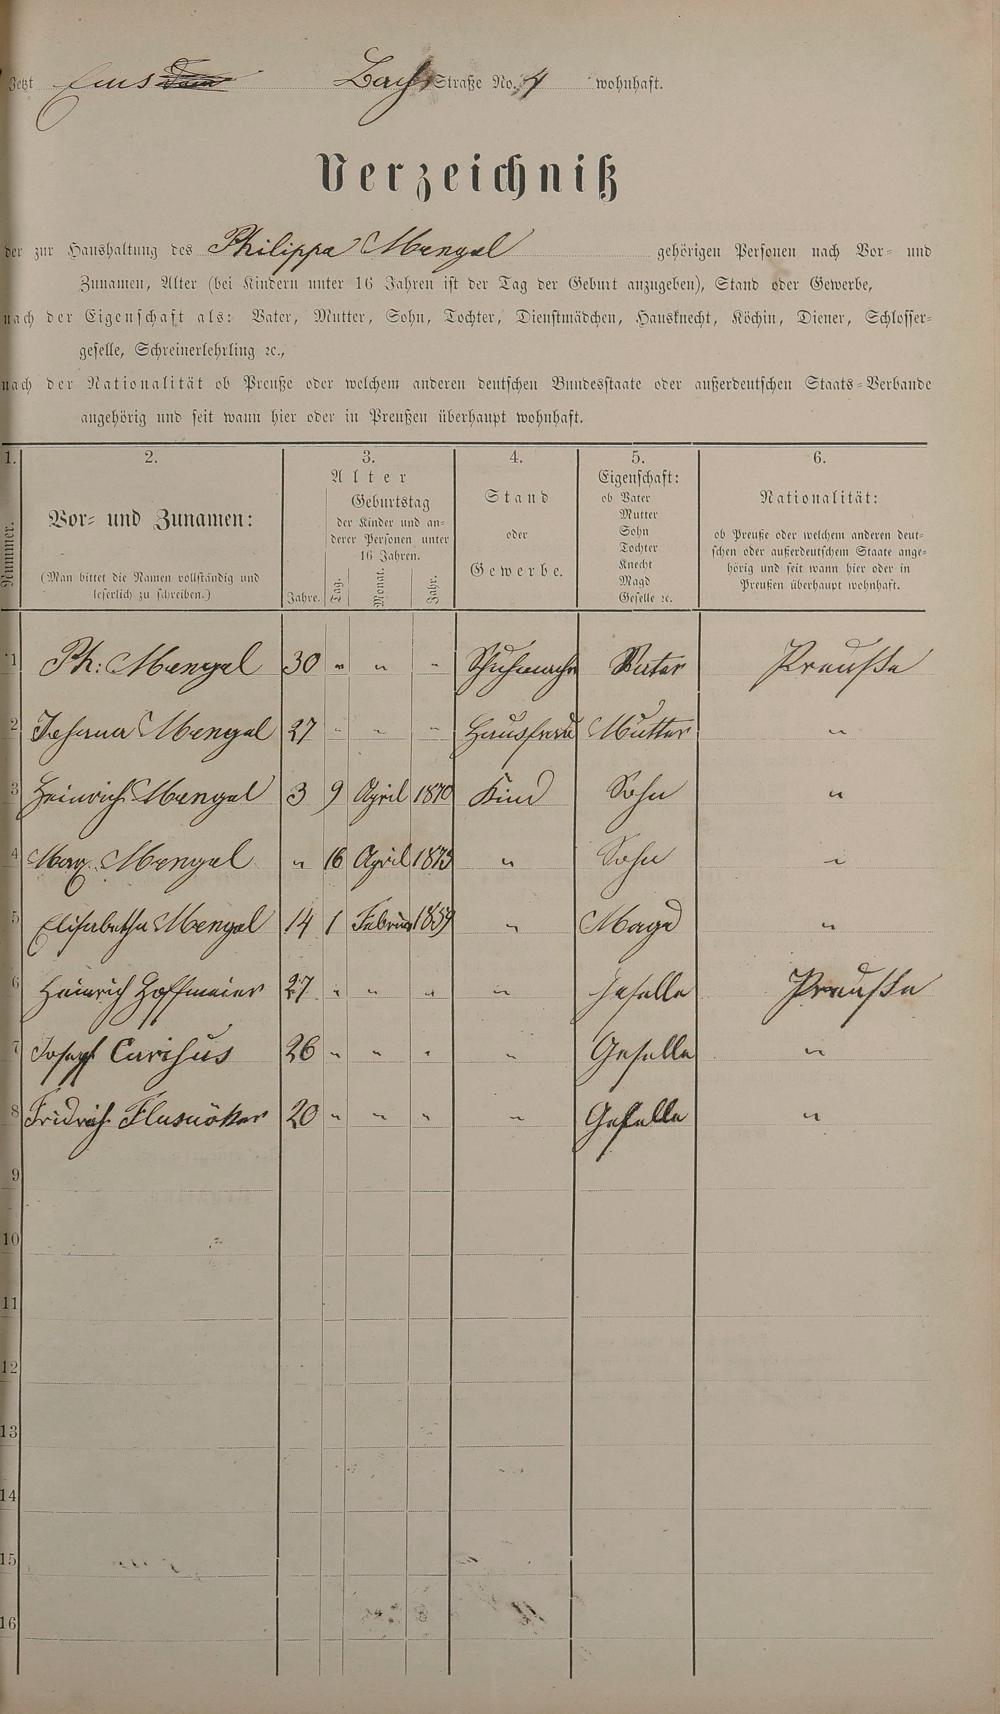 Jetzt Ems Bach Straße No. 4 wohnhaft.
Verzeichniß
der zur Haushaltung des Philippa Mengel gehörigen Personen nach Vor- und
Zunamen, Alter (bei Kindern unter 16 Jahren ist der Tag der Geburt anzugeben), Stand oder Gewerbe,
nach der Eigenschaft als: Vater, Mutter, Sohn, Tochter, Dienstmädchen, Hausknecht, Köchin, Diener, Schlosser-
geselle, Schreinerlehrling ꝛc.,
nach der Nationalität ob Preuße oder welchem anderen deutschen Bundesstaate oder außerdeutschen Staats-Verbande
angehörig und seit wann hier oder in Preußen überhaupt wohnhaft.
1.
Nummer.
2.
Vor- und Zunamen:
(Man bittet die Namen vollständig und
leserlich zu schreiben.)
3.
Alter
Geburtstag
der Kinder und an-
derer Personen unter
16 Jahren.
Jahre. Tag. Monat. Jahr.
4.
Stand
oder
Gewerbe.
5.
Eigenschaft:
ob Vater
Mutter
Sohn
Tochter
Knecht
Magd
Geselle ꝛc.
6.
Nationalität:
ob Preuße oder welchem anderen deut-
schen oder außerdeutschem Staate ange-
hörig und seit wann hier oder in
Preußen überhaupt wohnhaft.
1 Ph: Mengel 30 " " " Schuhmacher Vater Preuße
2 Johana Mengel 27 " " " Hausfrau Mutter "
3 Heinrich Mengel 3 9 April 1870 Kind Sohn "
4 Max Mengel " 16 April 1873 " Sohn "
5 Elisabetha Mengel 14 1 Februar 1859 " Magd "
6 Heinrich Hoffmeier 27 " " " " Geselle Preuße
7 Josepf 26 " " " " Geselle "
8 Fridrich 20 " " " " Geselle "
9
10
11
12
13
14
15
16